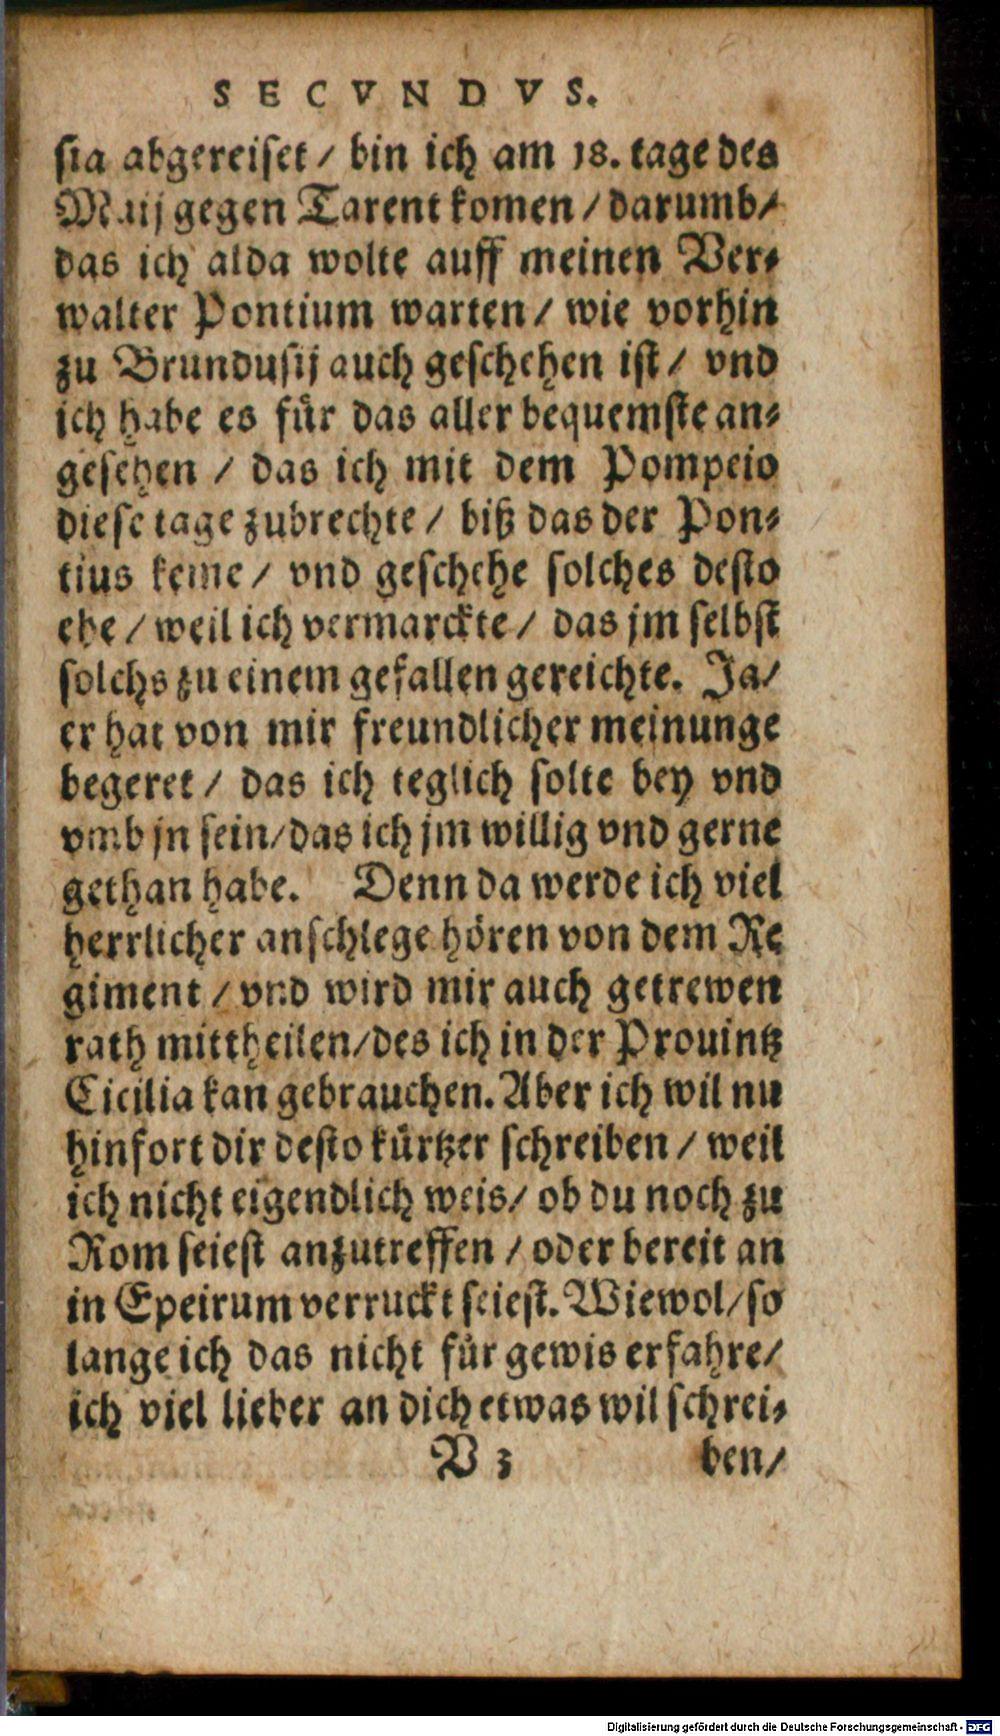 SECVNDVS.
sia abgereiset / bin ich am 18. tage des
Maij gegen Tarent komen / darumb /
das ich alda wolte auff meinen Ver-
walter Pontium warten / wie vorhin
zu Brundusij auch geschehen ist / vnd
ich habe es für das aller bequemste an-
gesehen / das ich mit dem Pompeio
diese tage zubrechte / biß das der Pon-
tius keme / vnd geschehe solches desto
ehe / weil ich vermarckte / das jm selbst
solchs zu einem gefallen gereichte. Ja /
er hat von mir freundlicher meinunge
begeret / das ich teglich solte bey vnd
vmb jn sein / das ich jm willig vnd gerne
gethan habe. Denn da werde ich viel
herrlicher anschlege hören von dem Re
giment / vnd wird mir auch getrewen
rath mittheilen / des ich in der Prouintz
Cicilia kan gebrauchen. Aber ich wil nu
hinfort dir desto kürtzer schreiben / weil
ich nicht eigendlich weis / ob du noch zu
Rom seiest anzutreffen / oder bereit an
in Epeirum verruckt seiest. Wiewol / so
lange ich das nicht für gewis erfahre /
ich viel lieber an dich etwas wil schrei-
V 3 ben /
Digitalisierung gefördert durch die Deutsche Forschungsgemeinschaft - DFG